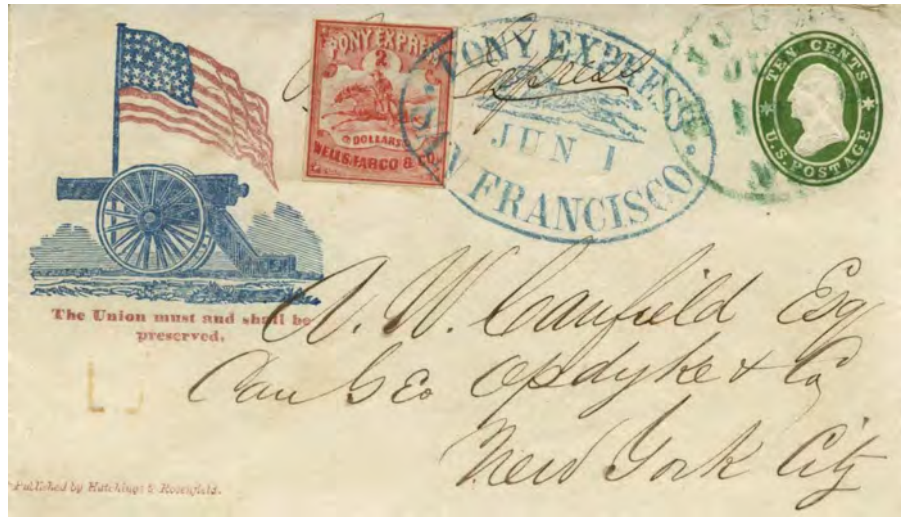 PONY EXPRESS
2
DOLLARS
WELLS, FARGO & CO.
Express
PONY EXPRESS
JUN 1
SAN FRANCISCO
TEN CENTS
U.S. POSTAGE
The Union must and shall be
preserved.
A. W. Canfield Esq
Care Geo Opdyke & Co
New York City
Published by Hutchings & Rosenfield.